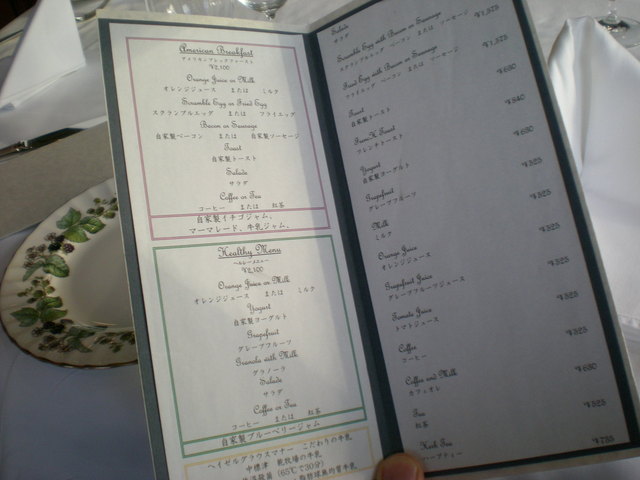 American Breakfast
アメリカンブレックファースト
¥2,100
Orange Juice or Milk
オレンジジュース または ミルク
Scramble Egg or Fried Egg
スクランブルエッグ または フライエッグ
Bacon or Sausage
自家製ベーコン または 自家製ソーセージ
Toast
自家製トースト
Salade
サラダ
Coffee or Tea
コーヒー または 紅茶
自家製イチゴジャム、
マーマレード、牛乳ジャム、
Healthy Menu
ヘルシーメニュー
¥2,100
Orange Juice or Milk
オレンジジュース または ミルク
Yogurt
自家製ヨーグルト
Grapefruit
グレープフルーツ
Granola with Milk
グラノーラ
Salade
サラダ
Coffee or Tea
コーヒー または 紅茶
自家製ブルーベリージャム
ヘイゼルグラウスマナー こだわりの牛乳
中標津 乾牧場の牛乳
(65℃で30分)
Salade
サラダ
Scramble Egg with Bacon or Sausage ¥1,575
スクランブルエッグ ベーコン または ソーセージ
Fried Egg with Bacon or Sausage ¥1,575
フライエッグ ベーコン または ソーセージ
Toast ¥630
自家製トースト
French Toast ¥840
フレンチトースト
Yogurt ¥630
自家製ヨーグルト
Grapefruit ¥525
グレープフルーツ
Milk ¥525
ミルク
Orange Juice ¥525
オレンジジュース
Grapefruit Juice ¥525
グレープフルーツジュース
Tomato Juice ¥525
トマトジュース
Coffee ¥525
コーヒー
Coffee and Milk ¥630
カフェオレ
Tea ¥525
紅茶
Herb Tea ¥735
ハーブティー